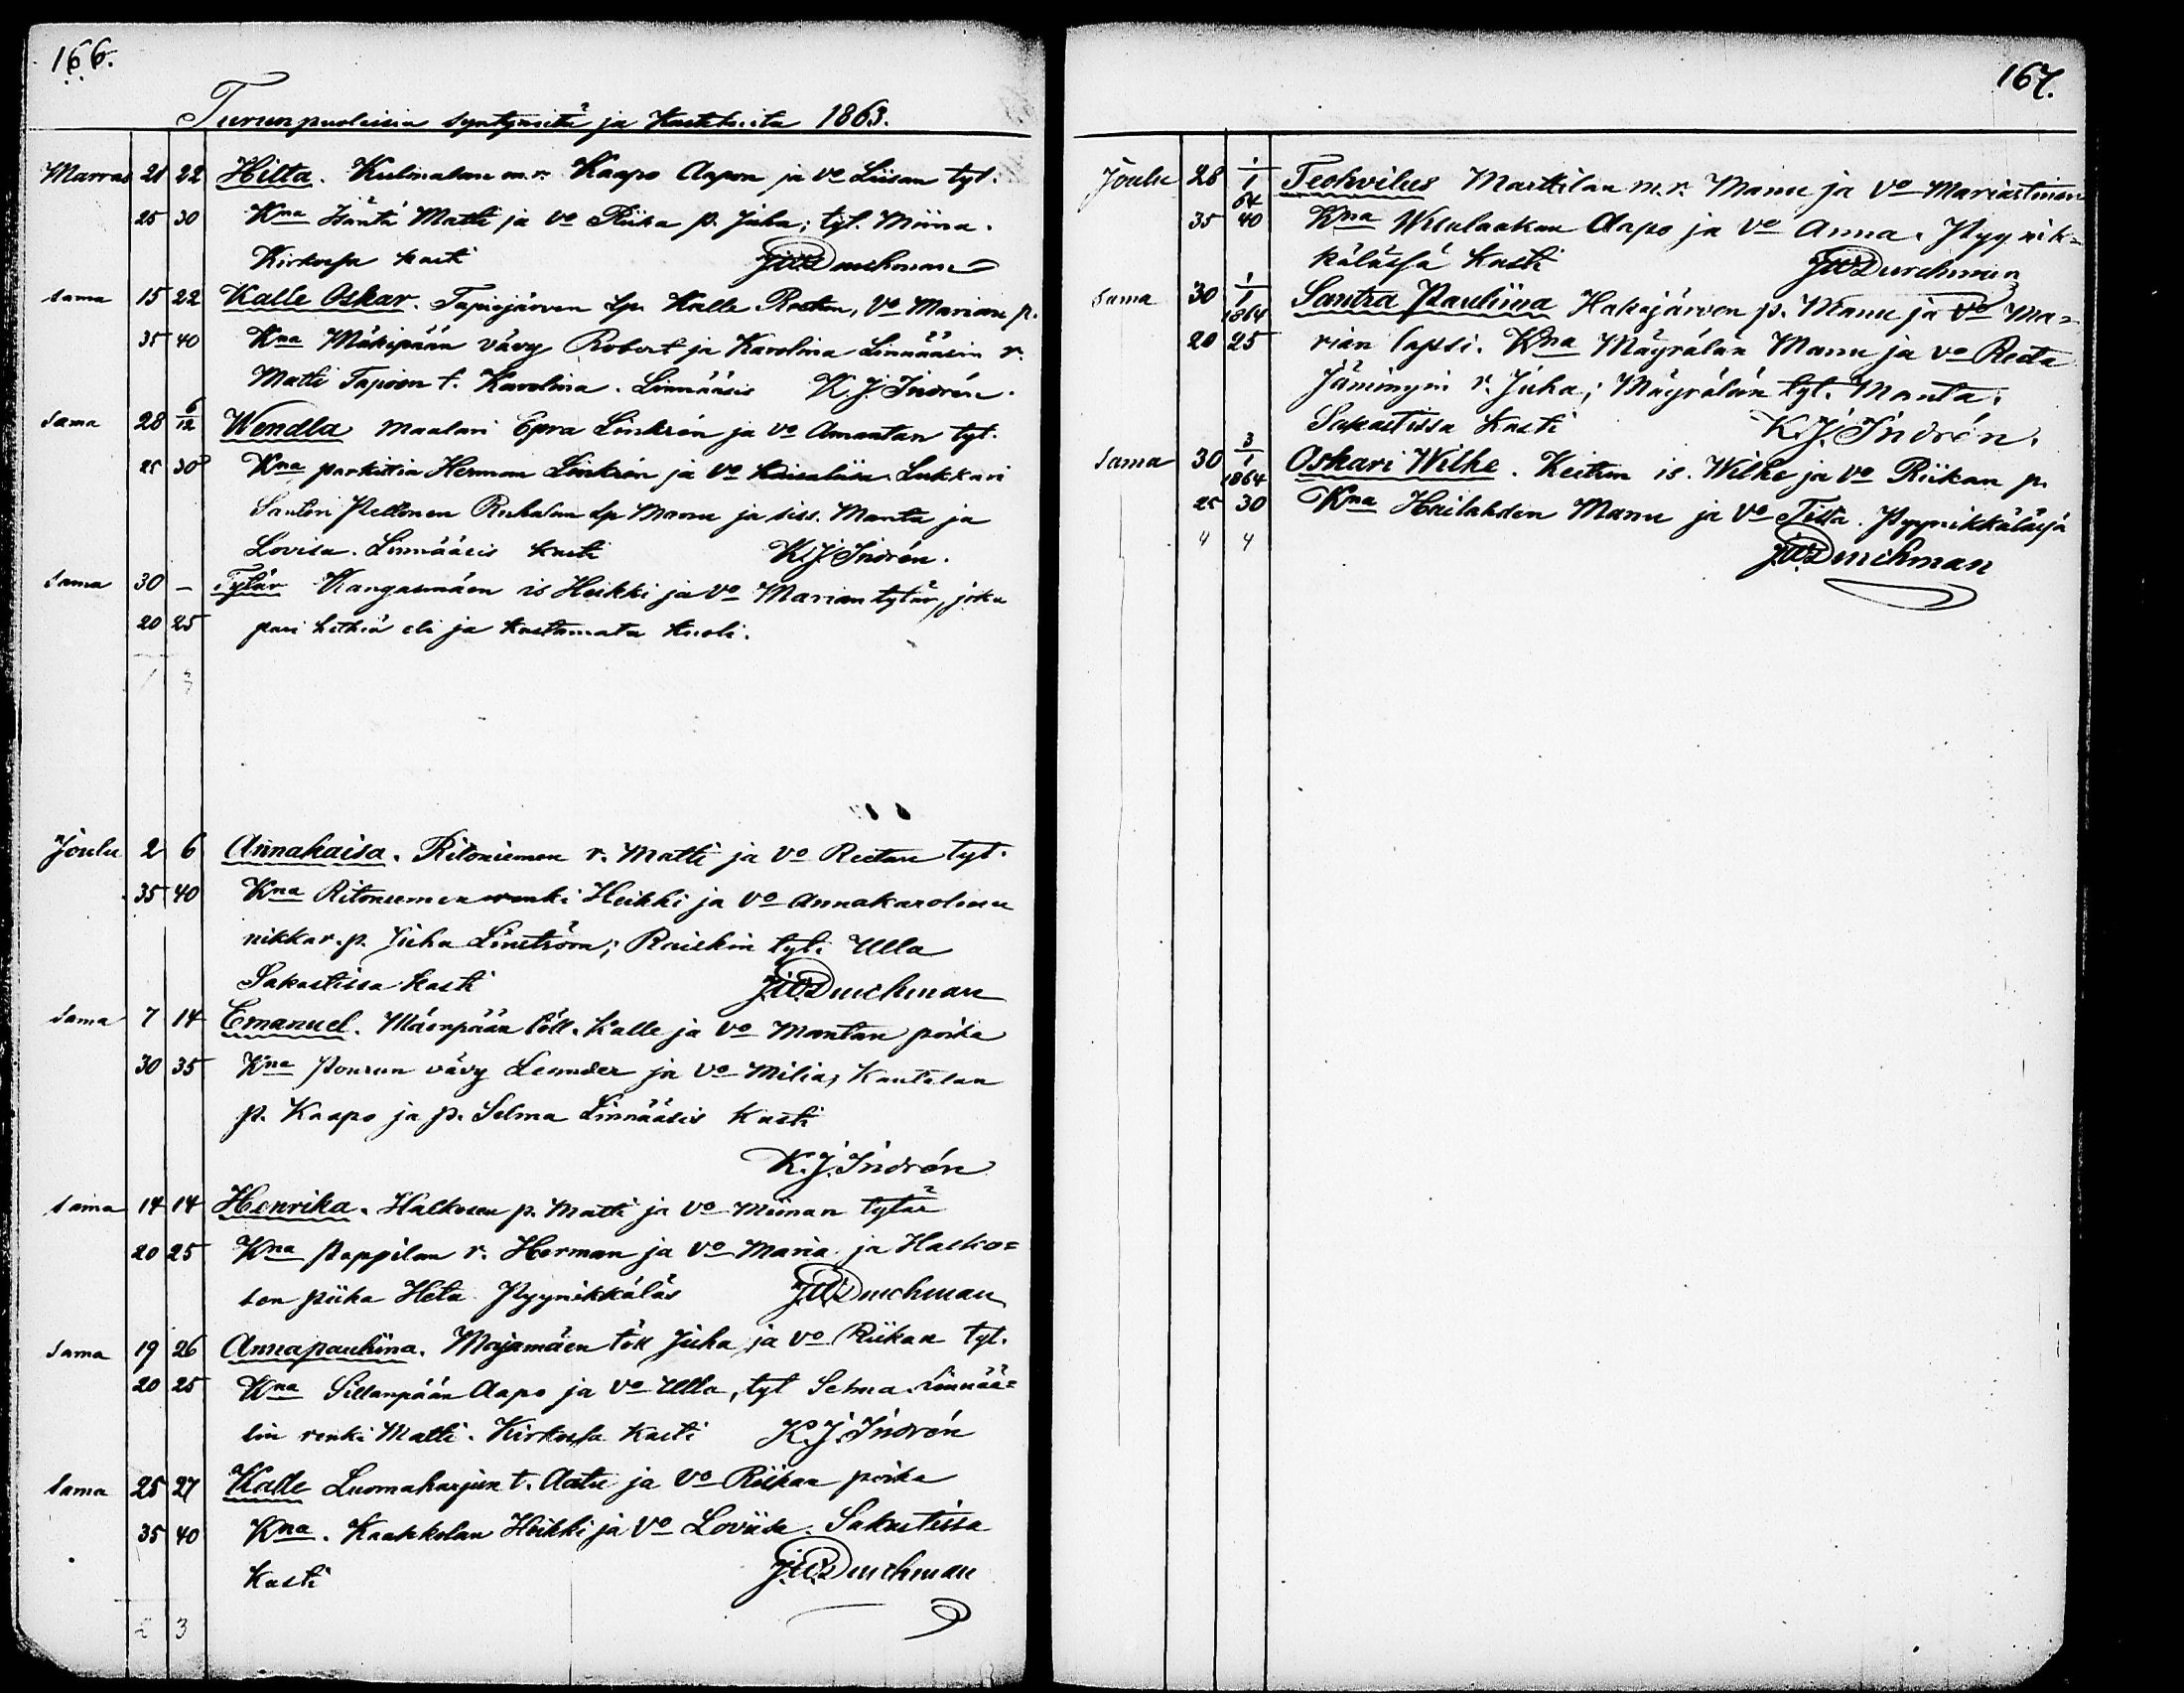 166.
Turunpuoleisia syntyneitä ja Kastetuita 1863.
Marras 21 22 Hilta. Kulmalan m.r. Kaapo Aapon ja vo Liisan tyt.
25 30 Kna Isäntä Matti ja vo Riika p. Juha; tyt. Miina.
Kirkossa kasti JWDurchman
sama 15 22 Kalle Oskar. Tapiojärven lp. Kalle vo Marian p.
35 40 Kna Mäkipään vävy Robert ja Karolina Linnääsin r.
Matti Tapion t. Karolina. Linnääsis K.J. Indrén.
sama 28 6/12 Wendla Maalari Epra Linkrén ja vo Amantan tyt.
25 30 Kna Herman Linkrén ja vo Lukkari
Santeri Peltonen lp Manu ja siss. Manta ja
Lovisa. Linnääsis kasti K.J. Indrén.
sama 30 – Tytär Kangasmäen is Heikki ja vo Marian tytär, joka
20 25 pari hetkiä eli ja kastamata kuoli.
1 3
Joulu 2 6 Annakaisa. Ritoniemen r. Matti ja vo Reetan tyt.
35 40 Kna Ritoniemen renki Heikki ja vo Annakarolina
nikkar. p. Juha Linström; tyt. Ulla
Sakastissa kasti J.W.Durchman
sama 7 14 Emanuel. Mäenpään töll. Kalle ja vo Mantan poika
30 35 Kna vävy Leander ja vo Milia, Kantolan
p. Kaapo ja p. Selma Linnääsis kasti
K.J. Indrén
sama 14 14 Henrika. Halkosen p. Matti ja vo Miinan tytär
20 25 Kna Pappilan r. Herman ja vo Maria ja Halko=
sen piika Heta Pyynikkäläs J.W.Durchman
sama 19 26 Annapauliina. Majamäen töll Juha ja vo Riikan tyt.
20 25 Kna Sillanpään Aapo ja vo Ulla, tyt Selma. Linnää=
sin renki Matti. Kirkossa kasti K.J. Indrén
sama 25 27 Kalle Luomaharjun t. Aatu ja vo Riikan poika
35 40 Kna. Kaakkolan Heikki ja vo Loviisa. Sakastissa
kasti J.W.Durchman
2 3
167.
Joulu 28 1/1 64 Teohvilus Marttilan m.r. Manu ja vo Mariastiinan
35 40 Kna Aapo ja vo Anna. Pyynik=
kälässä kasti JWDurchman
sama 30 1/1 1864 Santra Pauliina Hakajärven p. Manu ja vo Ma=
20 25 rian lapsi. Kna Mäyrälän Manu ja vo Reeta
Jäminyin r. Juha; Mäyrälän tyt. Manta.
Sakastissa kasti K.J. Indrén.
sama 30 3/1 1864 Oskari Wilhe. Keitun is. Wilhe ja vo Riikan p.
25 30 Kna Hailahden Manu ja vo Tiita. Pyynikkälässä
4 4 J.W.Durchman